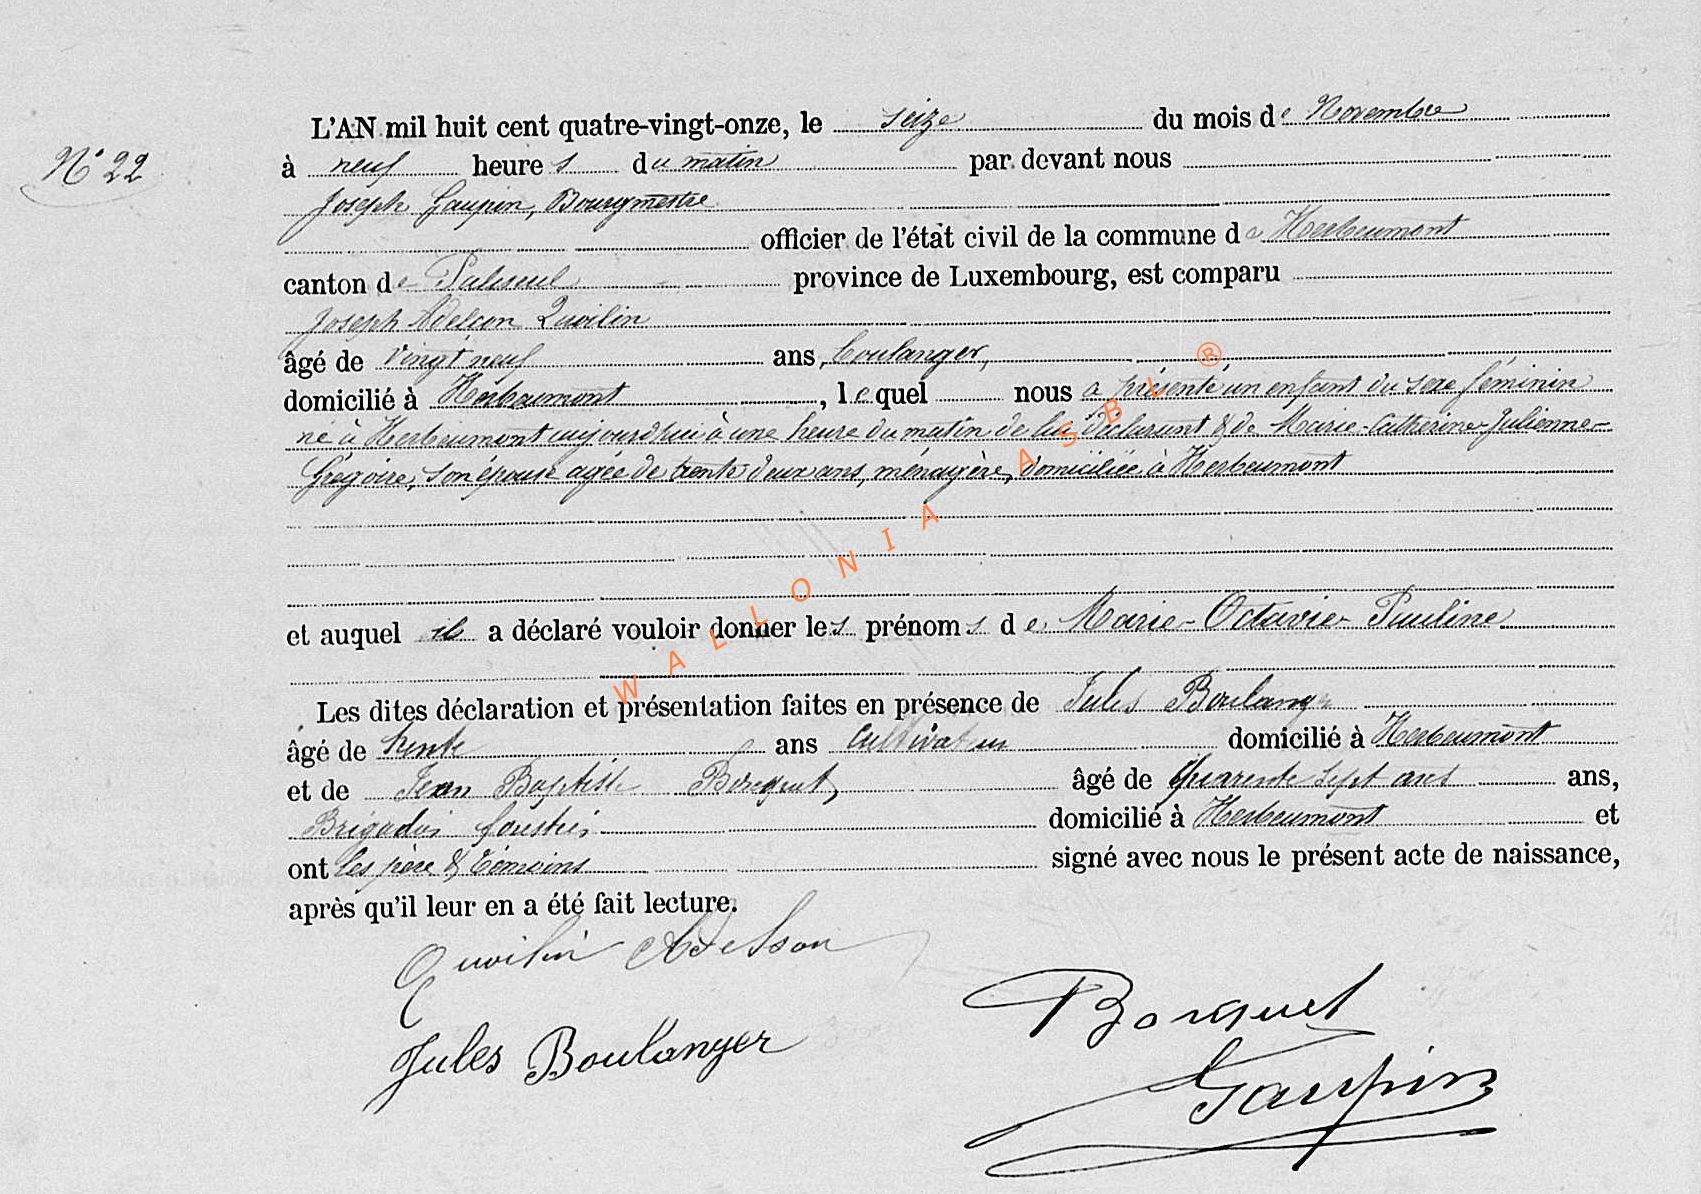 N° 22
L'AN mil huit cent quatre-vingt-onze, le seize du mois de Novembre
à neuf heures du matin par devant nous
Joseph Gaupin, Bourgmestre
officier de l'état civil de la commune de Herbeumont
canton de Paliseul province de Luxembourg, est comparu
Joseph Adelson Quoilin
âgé de vingt neuf ans, boulanger,
domicilié à Herbeumont, lequel nous a présenté un enfant du sexe féminin
né à Herbeumont aujourdhui à une heure du matin de lui déclarant & de Marie-Catherine-Julienne-
Grégoire, son épouse agée de trente deux ans, ménagère, domiciliée à Herbeumont
et auquel il a déclaré vouloir donner les prénoms de Marie-Octavie-Pauline
Les dites déclaration et présentation faites en présence de Jules Boulanger
âgé de trente ans Cultivateur domicilié à Herbeumont
et de Jean Baptiste Borquet, âgé de Quarente sept ans ans,
Brigadier forestier domicilié à Herbeumont et
ont les père & témoins signé avec nous le présent acte de naissance,
après qu'il leur en a été fait lecture.
Quoilin Adelson
Borquet
Jules Boulanger
Gaupin
WALLONIA ASBL ®